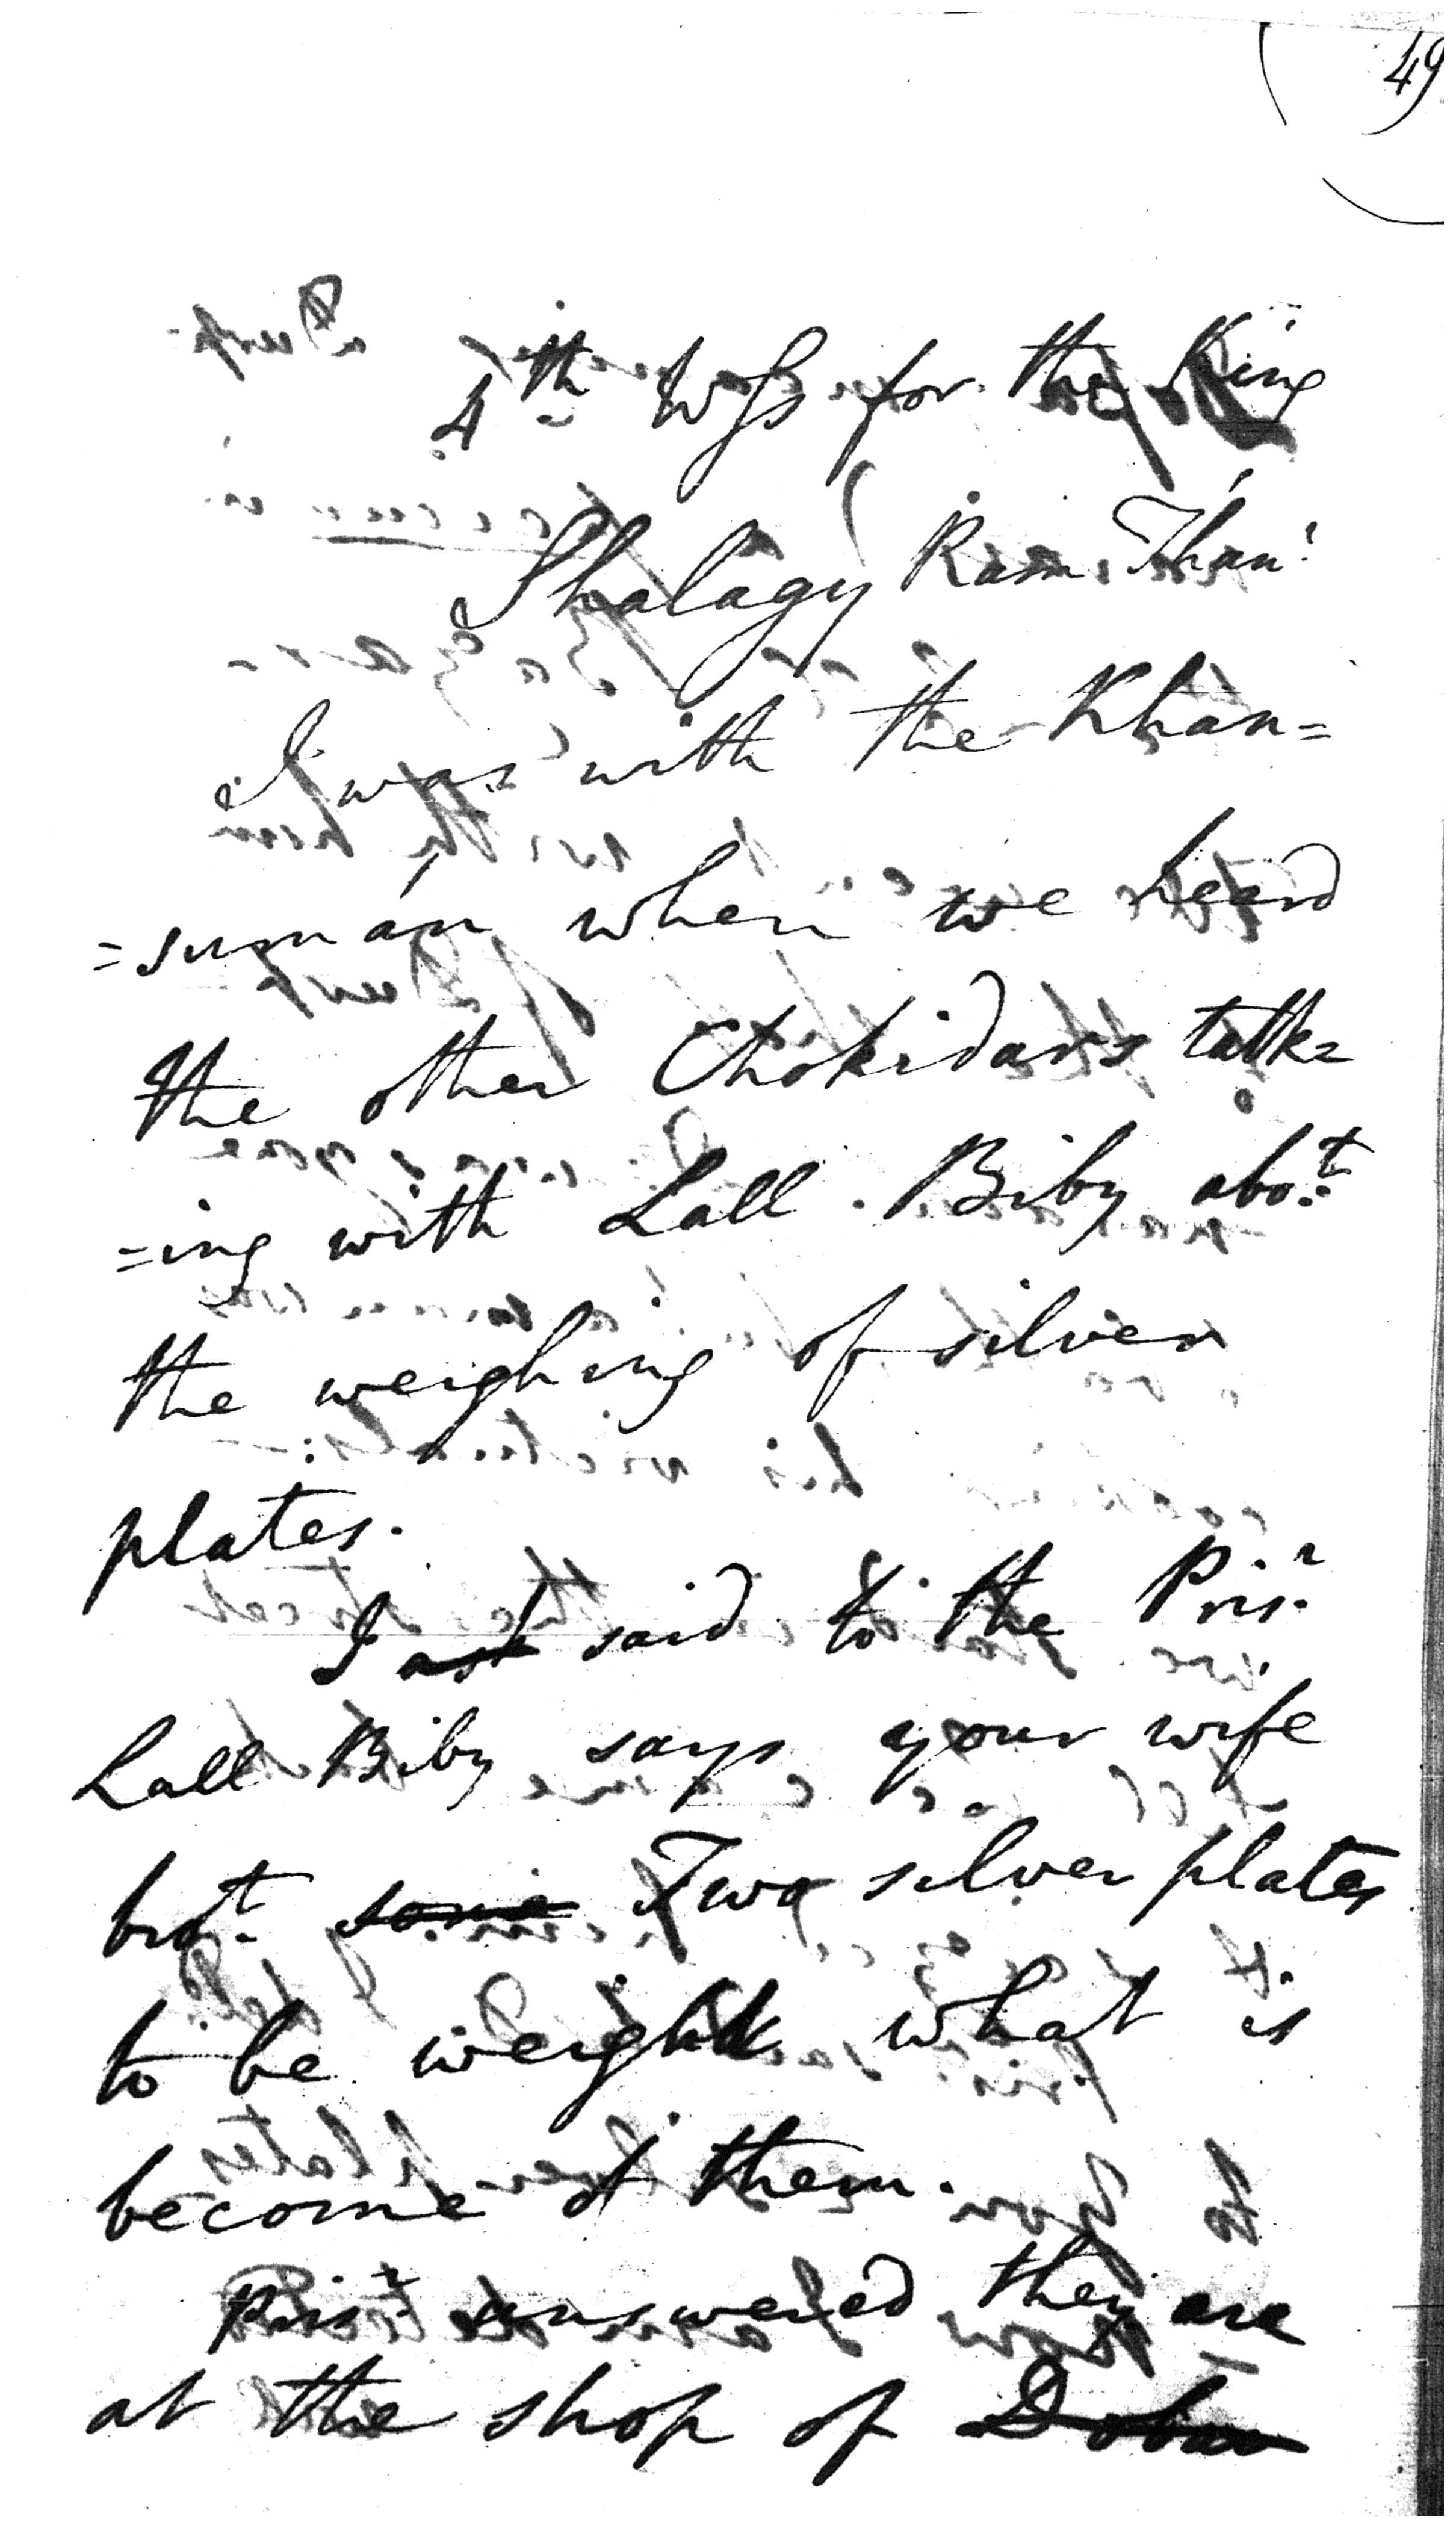 49
4th Wss for the King
Shalagy Ram Than:
I was with the Khan=
=sumán when we heard
the other Chokidars talk=
=ing with Lall Biby abot
the weighing of silver
plates.
I ask said to the Prisr
Lall Biby says your wife
brot some Two silver plates
to be weighd what is
become of them.
Prisr answered they are
at the shop of